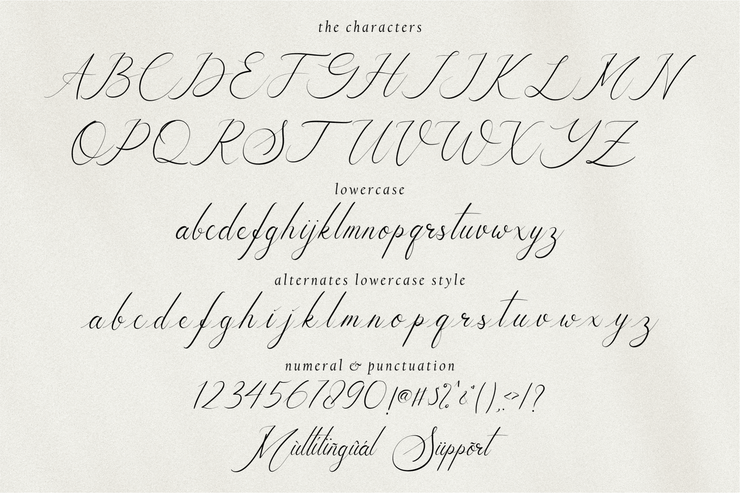 the characters
ABCDEFGHIJKLMN
OPQRSTUVWXYZ
lowercase
abcdefghijklmnopqrstuvwxyz
alternates lowercase style
abcdefghijklmnopqrstuvwxyz
numeral & punctuation
1234567890!@#$%^&*(),.<>/?
Mùltïtíñgùál Süppõrt